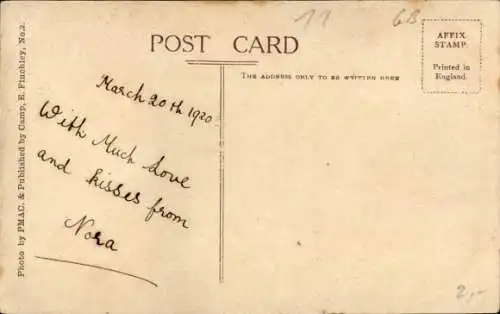 19 6B
POST CARD
AFFIX
STAMP.
Printed in
England.
THE ADDRESS ONLY TO BE WRITTEN HERE
Photo by PMAC. & Published by Camp, E. Finchley, No.2.
March 20th 1920
With Much Love
and kisses from
Nora
2,-